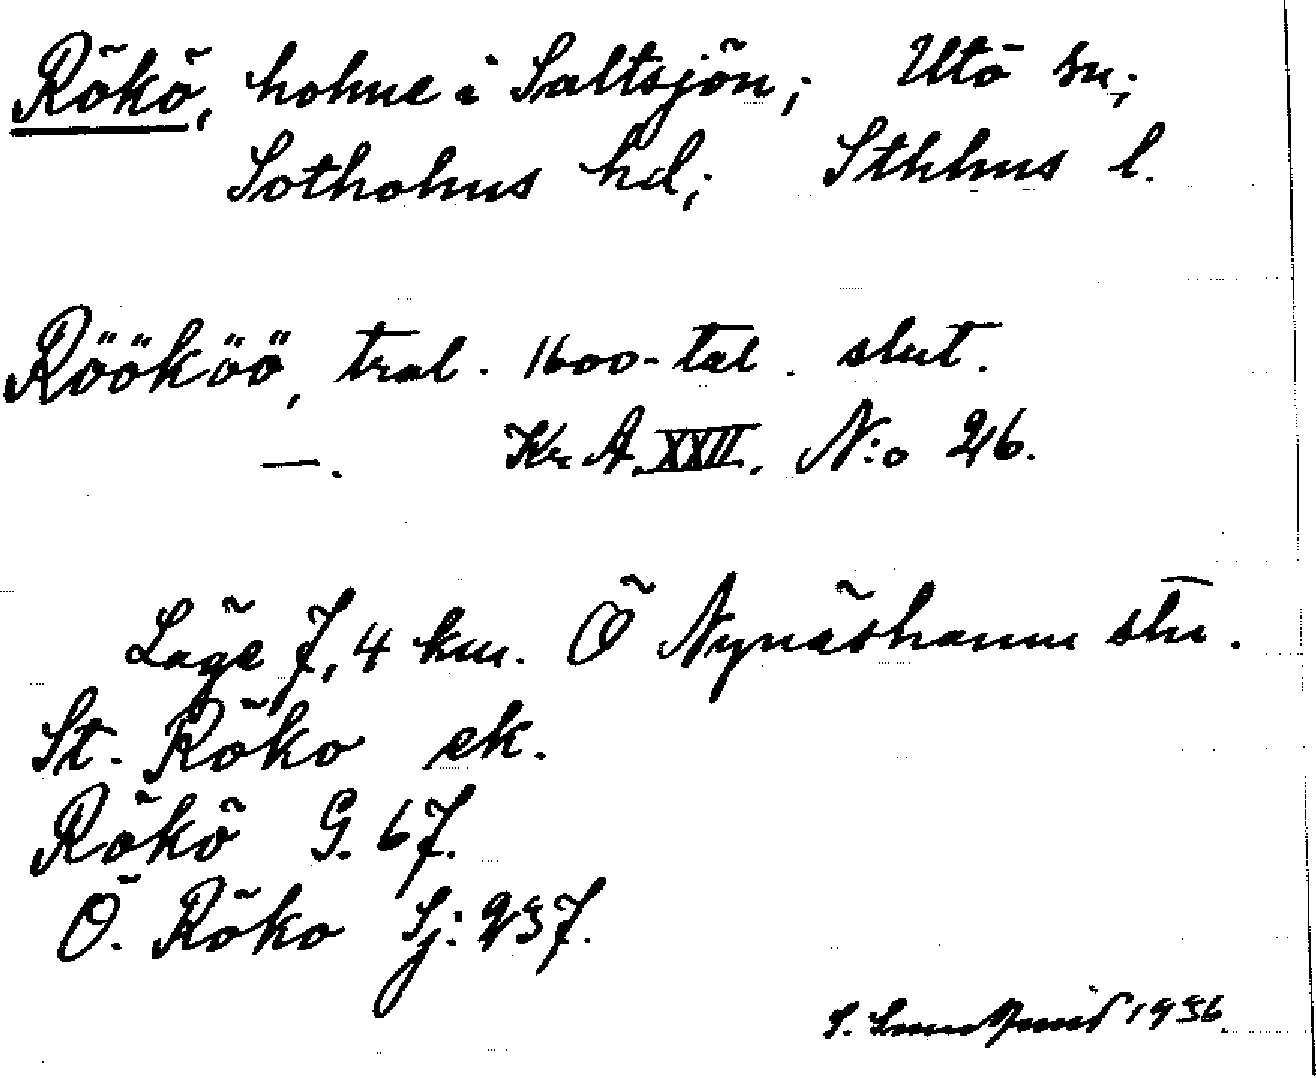 Rökö, holme i Saltsjön; Utö sn;
Sotholms hd; Sthlms l.
Röököö, tral. 1600-tal. slut.
—. Kr A. XXII. N:o 26.
Läge 7,4 km. Ö Nynäshamn stn.
St. Röko ek.
Rökö G. 67.
Ö. Röko Sj: 237.
S. 1936.